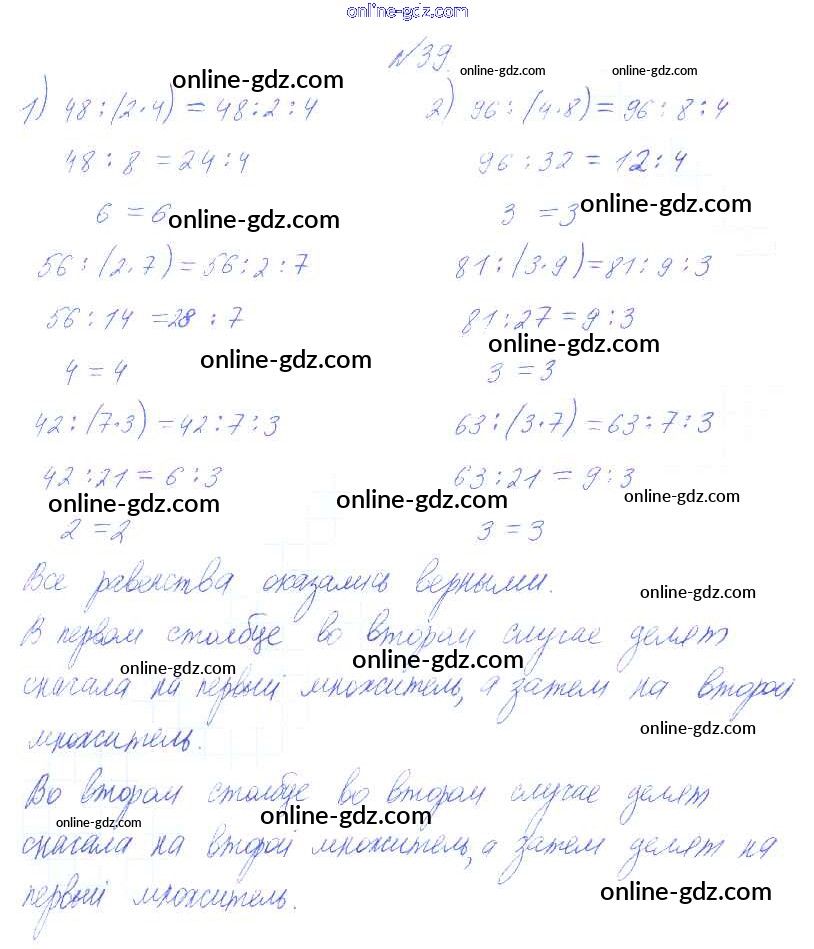 online-gdz.com
№39.
online-gdz.com online-gdz.com online-gdz.com
1) 48:(2·4) = 48:2:4
48:8 = 24:4
6 = 6
online-gdz.com
56:(2·7) = 56:2:7
56:14 = 28:7
4 = 4
online-gdz.com
42:(7·3) = 42:7:3
42:21 = 6:3
online-gdz.com
2 = 2
2) 96:(4·8) = 96:8:4
96:32 = 12:4
3 = 3
online-gdz.com
81:(3·9) = 81:9:3
81:27 = 9:3
online-gdz.com
3 = 3
63:(3·7) = 63:7:3
63:21 = 9:3
online-gdz.com online-gdz.com
3 = 3
Все равенства оказались верными.
online-gdz.com
В первом столбце во втором случае делят
online-gdz.com online-gdz.com
сначала на первый множитель, а затем на второй
online-gdz.com
множитель.
Во втором столбце во втором случае делят
online-gdz.com online-gdz.com
сначала на второй множитель, а затем делят на
первый множитель.
online-gdz.com